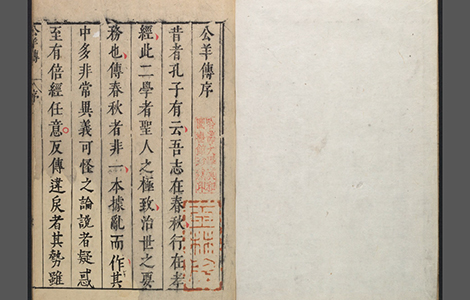 公羊傳序
昔者孔子有云吾志在春秋行在孝
經此二學者聖人之極致治世之要
務也傳春秋者非一本據亂而作其
中多非常異義可怪之論說者疑惑
至有倍經任意反傳違戾者其勢雖
公羊傳 序